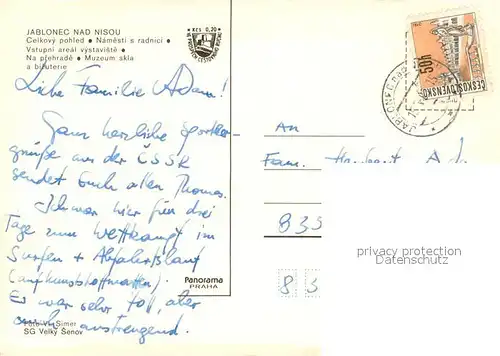 JABLONEC NAD NISOU
Celkový pohled ● Náměstí s radnicí ●
Vstupní areál výstaviště ●
Na přehradě ● Muzeum skla
a bižuterie
KČS 0,20
Liebe Familie Adam!
Ganz herzliche Sportler-
grüße aus der ČSSR
sendet Euch allen Thomas.
Ich war hier für drei
Tage zum Wettkampf im
Surfen + Abfahrtslauf
(auf Kunststoffmatten).
Es war sehr toll, aber
auch anstrengend.
Foto Vl. Šimer
SG Velký Šenov
Panorama
PRAHA
50h
ČESKOSLOVENSKO
JABLONEC
An
Fam. Herbert A
835
83
privacy protection
Datenschutz